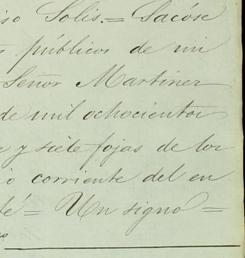 so Solis.= Sacóse
s públicos de mi
Señor Martinez
de mil ochocientos
e y siete fojas de los
io corriente del en
fé= Un signo=